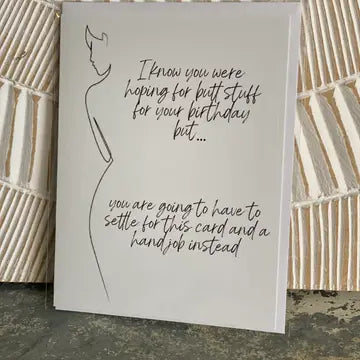 I know you were
hoping for butt stuff
for your birthday
but...
you are going to have to
settle for this card and a
handjob instead